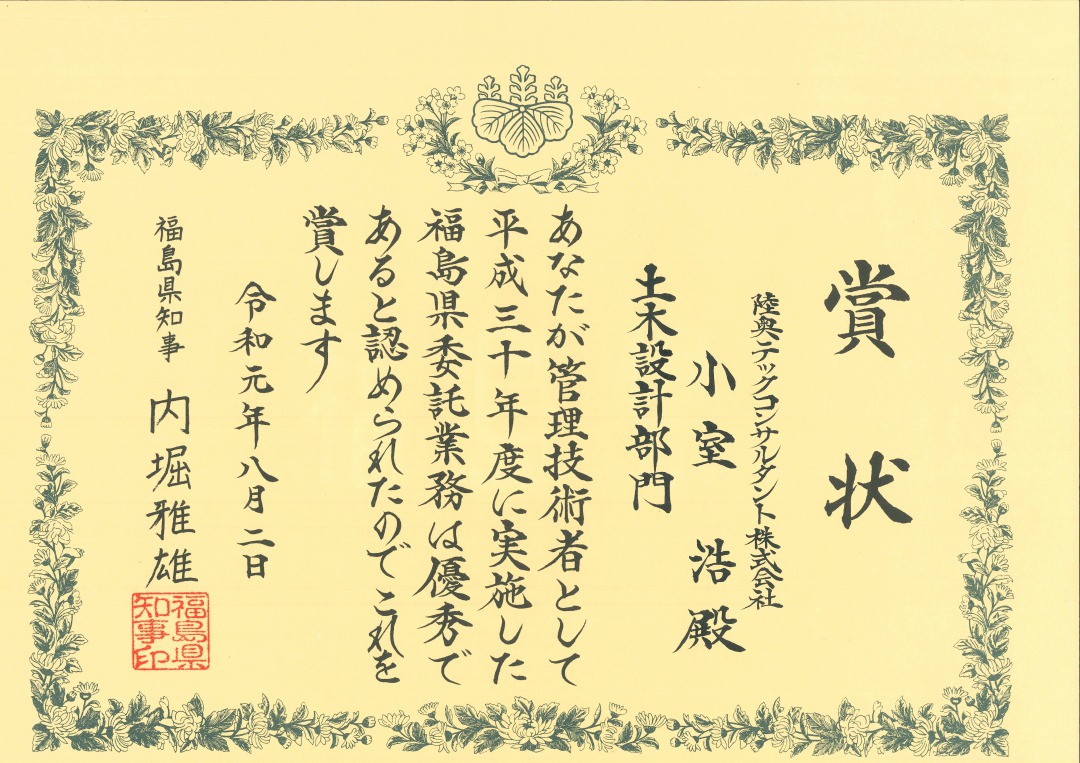 賞状
陸奥テックコンサルタント株式会社
小室浩殿
土木設計部門
あなたが管理技術者として
平成三十年度に実施した
福島県委託業務は優秀で
あると認められたのでこれを
賞します
令和元年八月二日
福島県知事 内堀雅雄
福島県
知事印